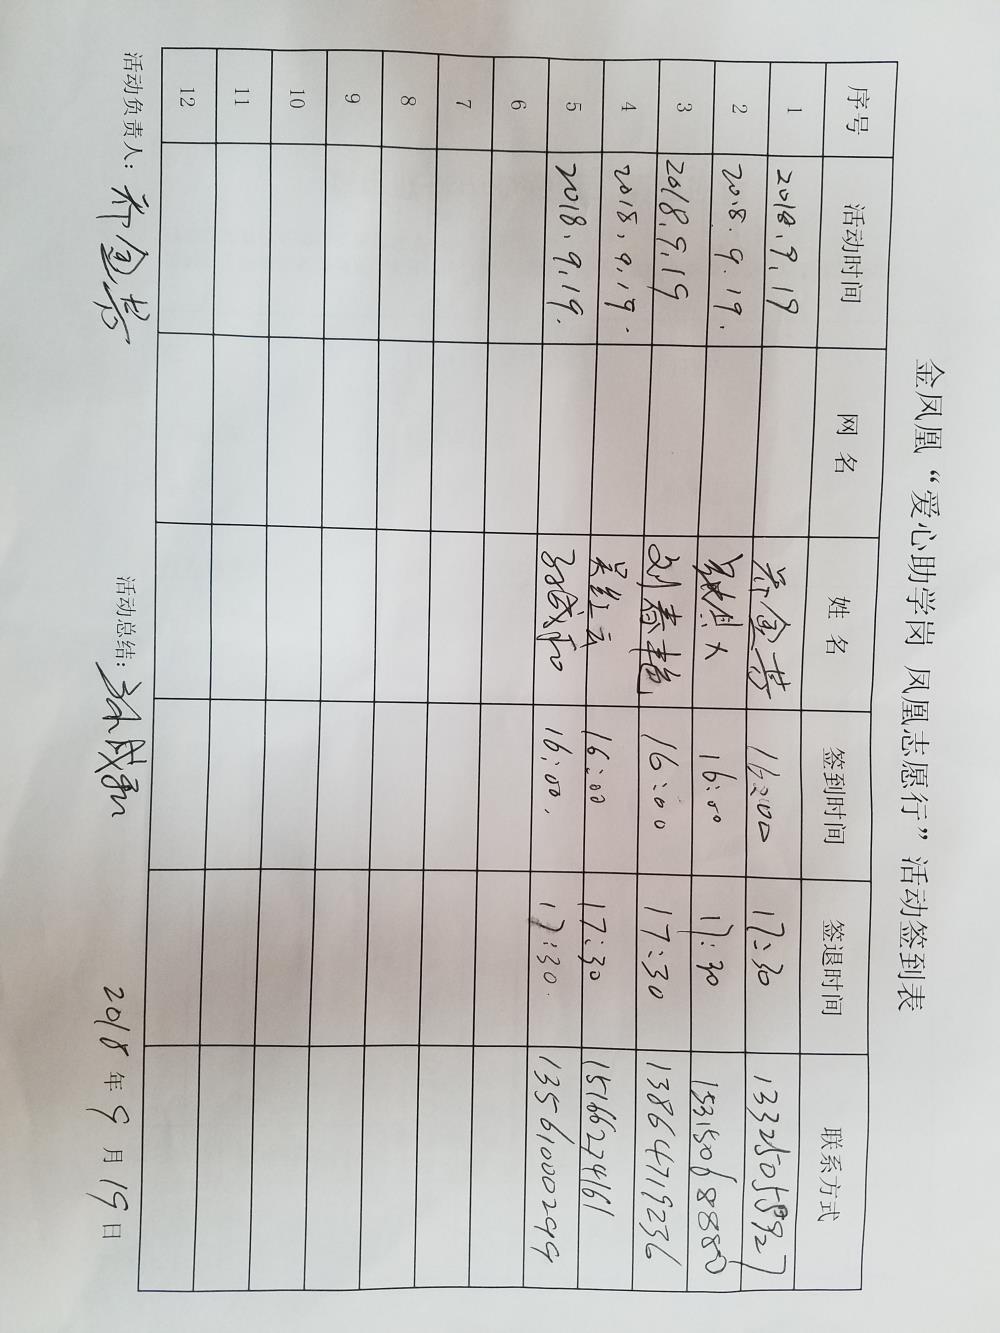 金凤凰“爱心助学岗 凤凰志愿行”活动签到表
序号 活动时间 网名 姓名 签到时间 签退时间 联系方式
1 2018.9.19 16:00 17:30 13325055927
2 2018.9.19. 16:00 17:30 15315068880
3 2018.9.19 刘春艳 16:00 17:30 13864719236
4 2018.9.19. 吴红云 16:00 17:30 15166227461
5 2018.9.19. 孙成和 16:00. 17:30. 13561000299
6
7
8
9
10
11
12
活动负责人: 活动总结: 2018年9月19日